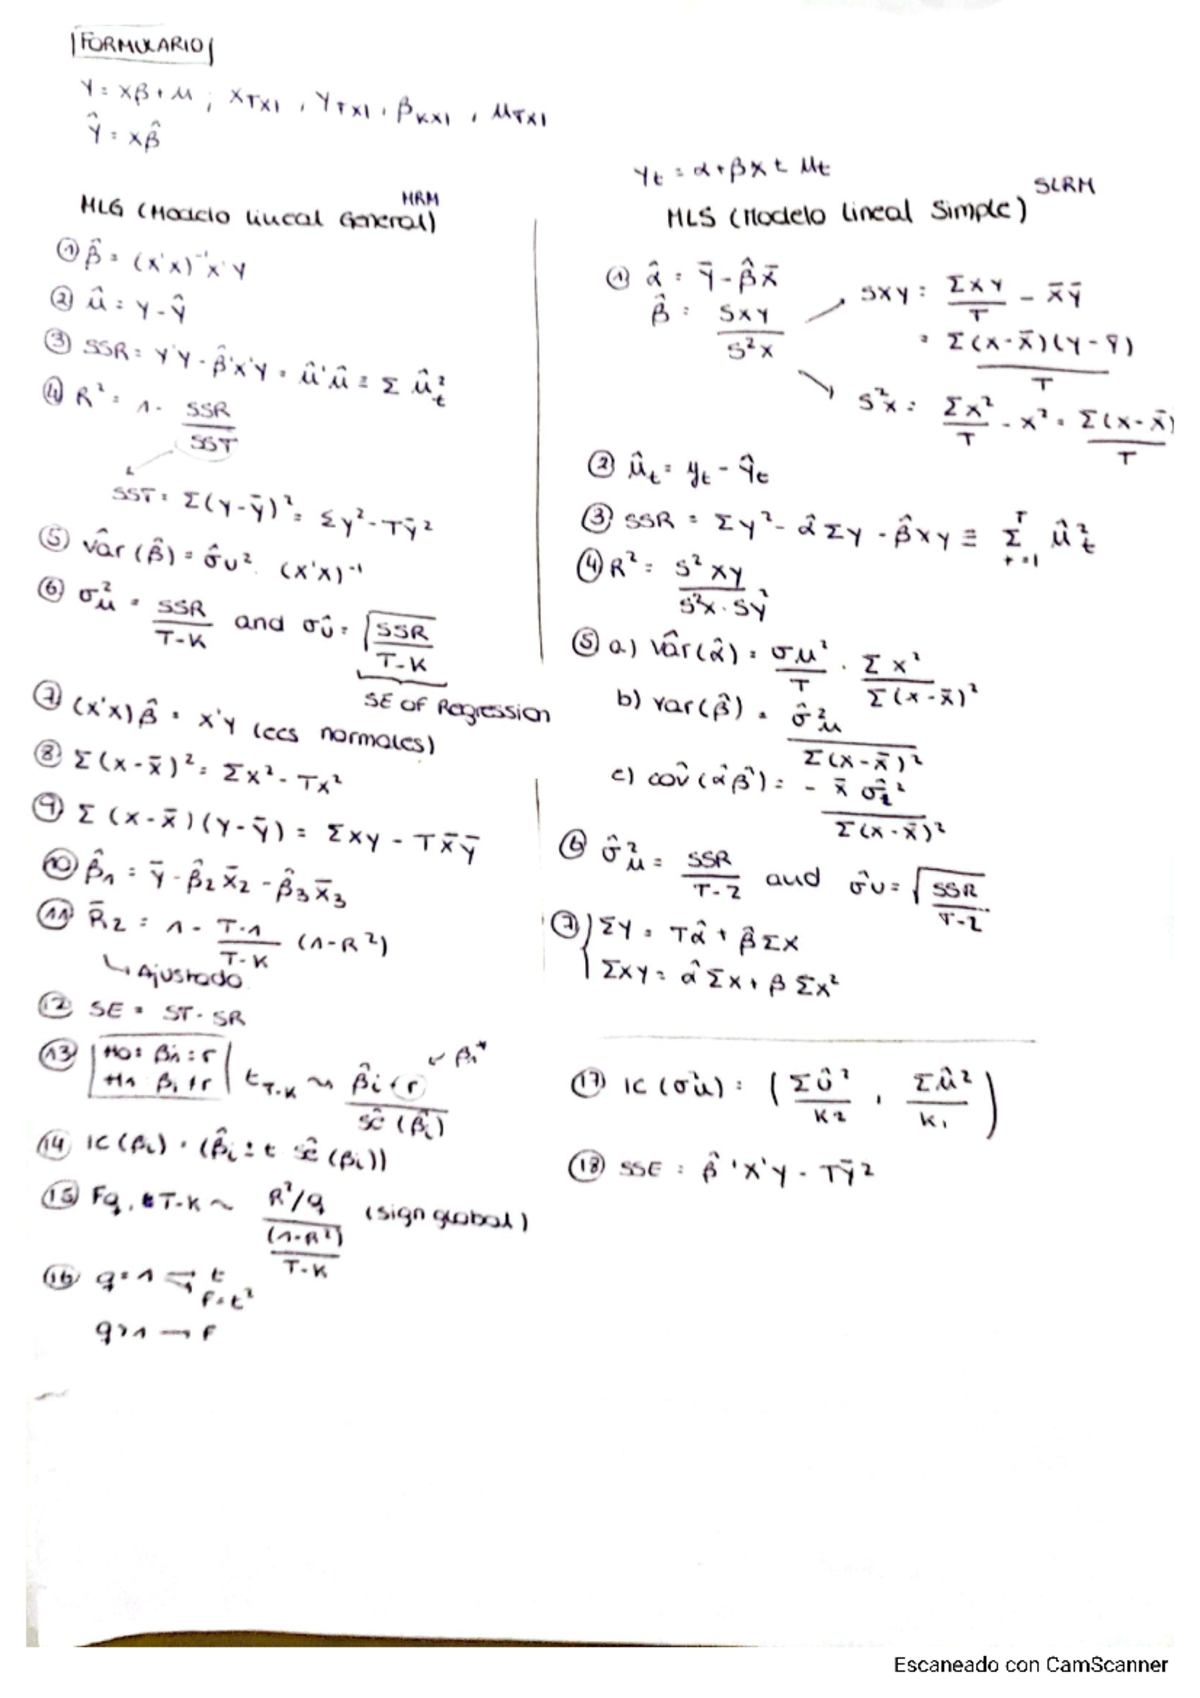 FORMULARIO
Y = Xβ + μ ; X_TX1 , Y_TX1 , β_KX1 , μ_TX1
Ŷ = Xβ̂
MLG (Modelo lineal General) MRM
① β̂ = (X'X)⁻¹X'Y
② û = Y - Ŷ
③ SSR = Y'Y - β̂'X'Y = û'û ≡ Σ û²_t
④ R² = 1 - SSR / SST
SST = Σ(Y-Ȳ)² = ΣY² - TȲ²
⑤ vâr(β̂) = σ̂u² · (X'X)⁻¹
⑥ σ²_μ = SSR / T-K and σû = √(SSR / T-K)
SE of Regression
⑦ (X'X)β̂ = X'Y (ecs normales)
⑧ Σ(x-x̄)² = Σx² - Tx²
⑨ Σ(x-x̄)(y-ȳ) = Σxy - Tx̄ȳ
⑩ β̂1 = ȳ - β̂2x̄2 - β̂3x̄3
⑪ R̄2 = 1 - T-1 / T-K (1-R²)
↳ Ajustado
⑫ SE = ST - SR
⑬ H0: βi = r
H1: βi ≠ r
t_T-K ~ β̂i - r / sê(β̂i) ↙ βi*
⑭ IC(βi) = (β̂i ± t sê(βi))
⑮ Fq, T-K ~ R²/q / (1-R²) / T-K (sign global)
⑯ q=1 → t
F=t²
q>1 → F
Yt = α + βXt μt
MLS (Modelo Lineal Simple) SLRM
① α̂ = Ȳ - β̂X̄
β̂ = SXY / S²X
SXY = ΣXY / T - X̄Ȳ
= Σ(X-X̄)(Y-Ȳ) / T
S²X = ΣX² / T - X² = Σ(X-X̄) / T
② ût = yt - ŷt
③ SSR = ΣY² - α̂ΣY - β̂XY ≡ Σ^T_t=1 û²_t
④ R² = S²XY / S²X · SY²
⑤ a) vâr(α̂) = σμ² / T · Σx² / Σ(x-x̄)²
b) var(β̂) = σ̂²_μ / Σ(x-x̄)²
c) côv(α̂β̂) = - x̄ σ̂² / Σ(x-x̄)²
⑥ σ̂²_μ = SSR / T-2 and σ̂u = √(SSR / T-2)
⑦ ΣY = Tα̂ + β̂ΣX
ΣXY = α̂ΣX + βΣX²
⑰ IC(σ²u) = (Σû² / K2 , Σû² / K1)
⑱ SSE = β̂'X'Y - TȲ²
Escaneado con CamScanner